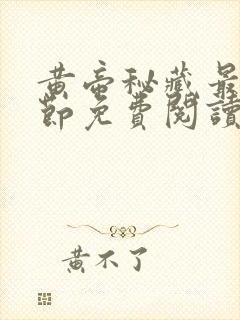 黄帝秘藏最
節免費閱讀
黄不了